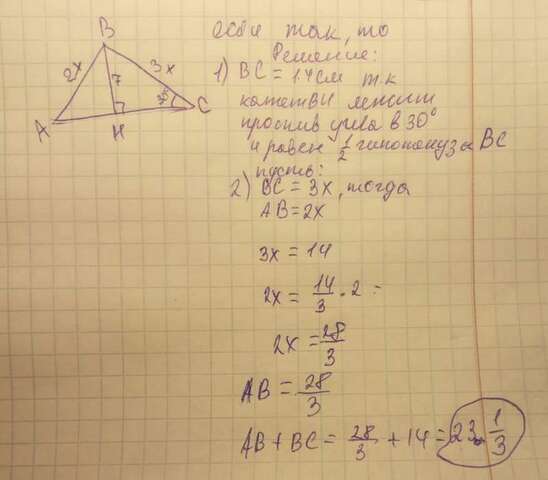 если так, то
Решение:
1) BC = 14см т.к
катет BH лежит
против угла в 30°
и равен 1/2 гипотенузы BC
пусть:
2) BC = 3x, тогда
AB = 2x
3x = 14
2x = 14/3 · 2 =
2x = 28/3
AB = 28/3
AB + BC = 28/3 + 14 = 23 1/3
B
2x
7
3x
30°
A
H
C